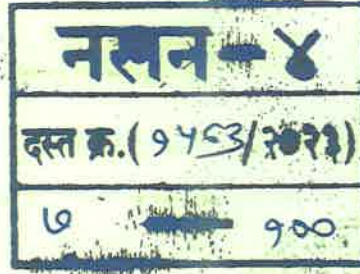 नलन - ४
दस्त क्र. (१५५३/२०२३)
७ १००